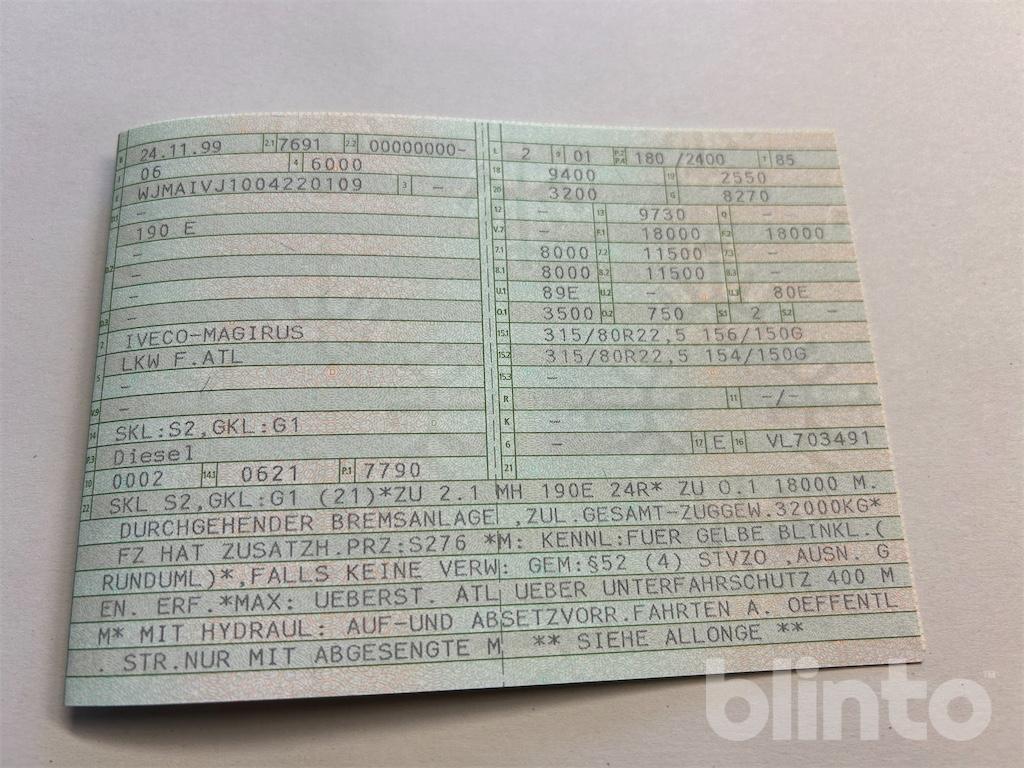 B 24.11.99 2.1 7691 2.2 00000000-
J 06 4 6000
E WJMAIVJ1004220109 3 -
-
190 E
D.2 -
-
-
D.3 -
2 IVECO-MAGIRUS
5 LKW F.ATL
- /
V.9 -
14 SKL:S2,GKL:G1
P.3 Diesel
10 0002 14.1 0621 P.1 7790
L 2 9 01 P.2 P.4 180 /2400 T 85
18 9400 19 2550
20 3200 G 8270
12 - 13 9730 Q -
V.7 - F.1 18000 F.2 18000
7.1 8000 7.2 11500 7.3 -
8.1 8000 8.2 11500 8.3 -
U.1 89E U.2 - U.3 80E
O.1 3500 O.2 750 S.1 2 S.2 -
15.1 315/80R22,5 156/150G
15.2 315/80R22,5 154/150G
15.3 -
R 11 -/-
K -
6 - 17 E 16 VL703491
21
22 SKL S2,GKL:G1 (21)*ZU 2.1 MH 190E 24R* ZU O.1 18000 M.
DURCHGEHENDER BREMSANLAGE ,ZUL.GESAMT-ZUGGEW.32000KG*
FZ HAT ZUSATZH.PRZ:S276 *M: KENNL:FUER GELBE BLINKL.(
RUNDUML)*,FALLS KEINE VERW: GEM:§52 (4) STVZO ,AUSN. G
EN. ERF.*MAX: UEBERST. ATL UEBER UNTERFAHRSCHUTZ 400 M
M* MIT HYDRAUL: AUF-UND ABSETZVORR.FAHRTEN A. OEFFENTL
. STR.NUR MIT ABGESENGTE M ** SIEHE ALLONGE **
blinto™